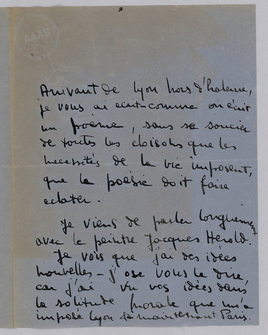 Arrivant de Lyon hors d'haleine,
je vous ai écrit comme on écrit
un poème, sans se soucier
de toutes les cloisons que les
nécessités de la vie imposent,
que la poésie doit faire
éclater.
Je viens de parler longuement
avec le peintre Jacques Herold.
Je vois que j'ai des idées
nouvelles - j'ose vous le dire
car j'ai vu vos idées dans
la solitude morale que m'a
imposé Lyon et maintenant Paris.